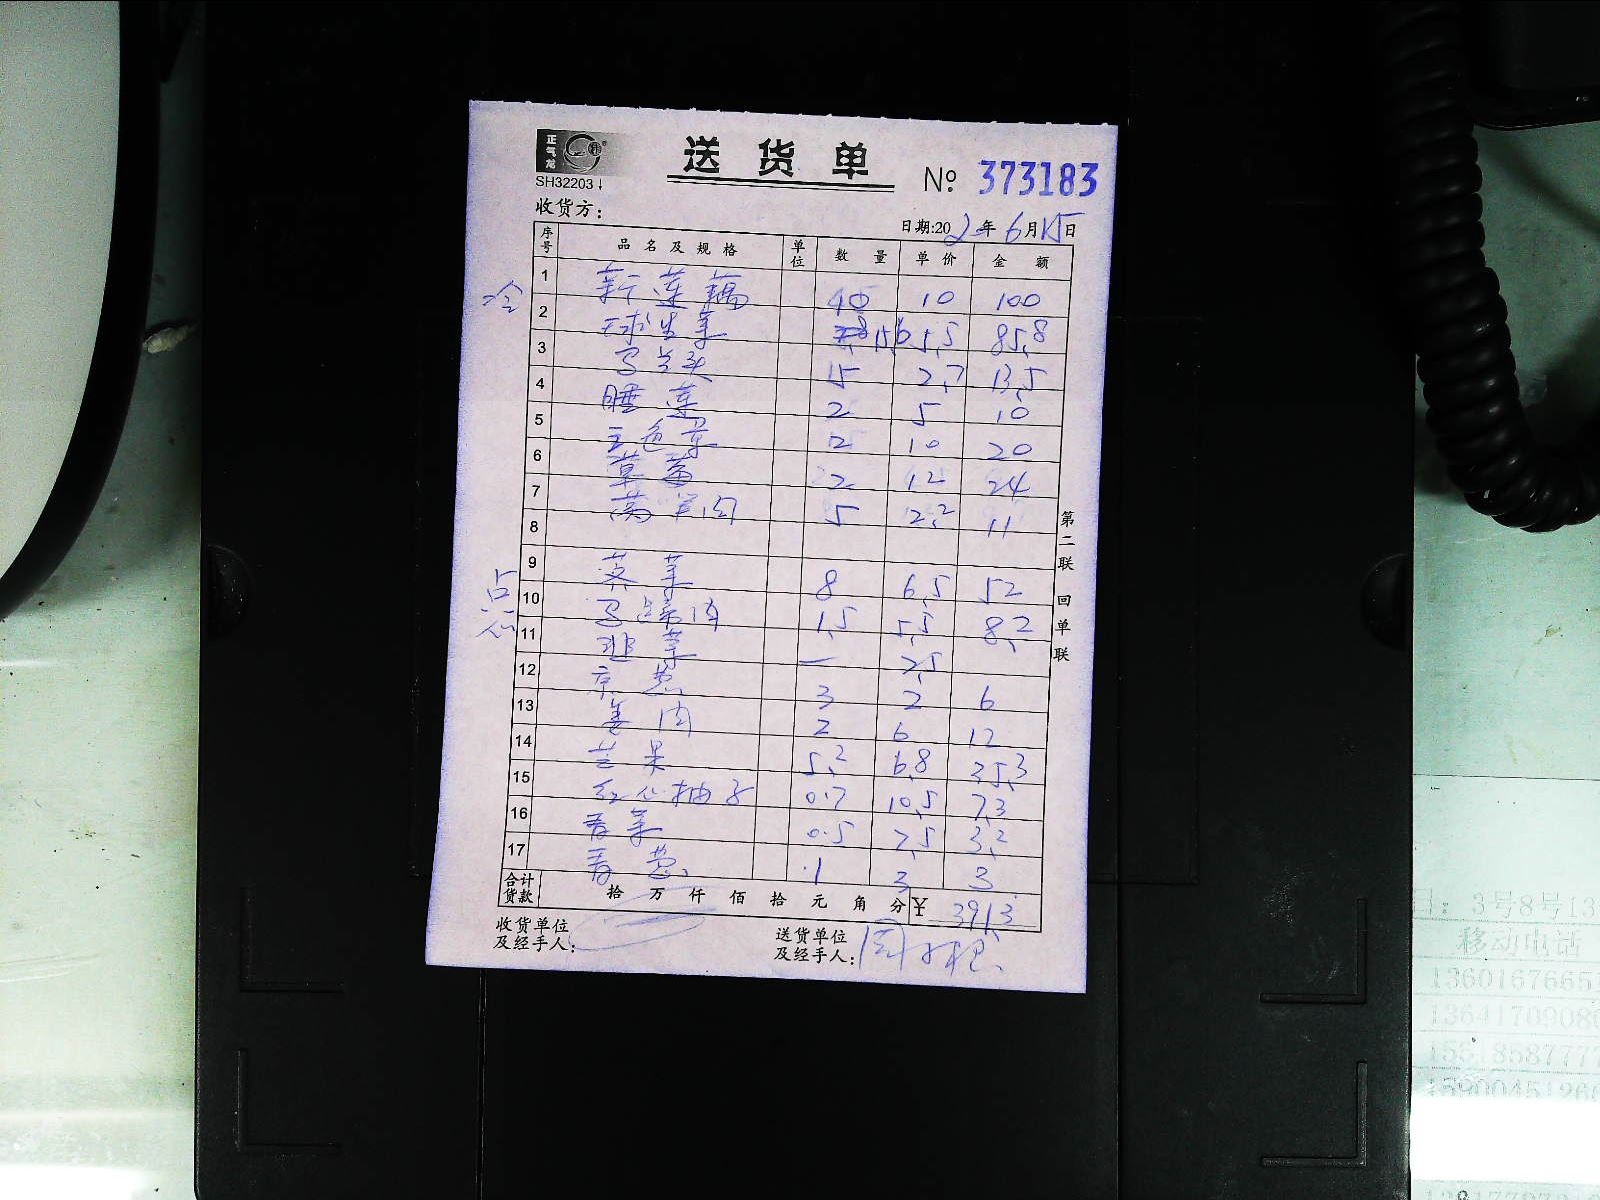 正气龙
SH32203↓
送货单
№ 373183
收货方:
日期:202 年6月15日
序号 品名及规格 单位 数量 单价 金额
冷
1 新莲藕 10 100
2 球生菜 15.6 5.5 85.8
3 15 2.7 13.5
4 睡莲 2 5 10
5 三色堇 2 10 20
6 草莓 2 12 24
7 5 2.2 11
8
点心
9 菜 8 6.5 52
10 马蹄肉 1.5 5.5 8.2
11 韭菜 一
12 京葱 3 2 6
13 姜肉 2 6 12
14 芒果 5.2 6.8 35.3
15 红心柚子 0.7 10.5 7.3
16 香菜 0.5 3.2
17 香葱 1 3 3
合计货款 拾万仟佰拾元角分 ¥ 391.3
收货单位及经手人:
送货单位及经手人: 周
第二联 回单联
目: 3号8号13
移动电话
1360167665
1364170908